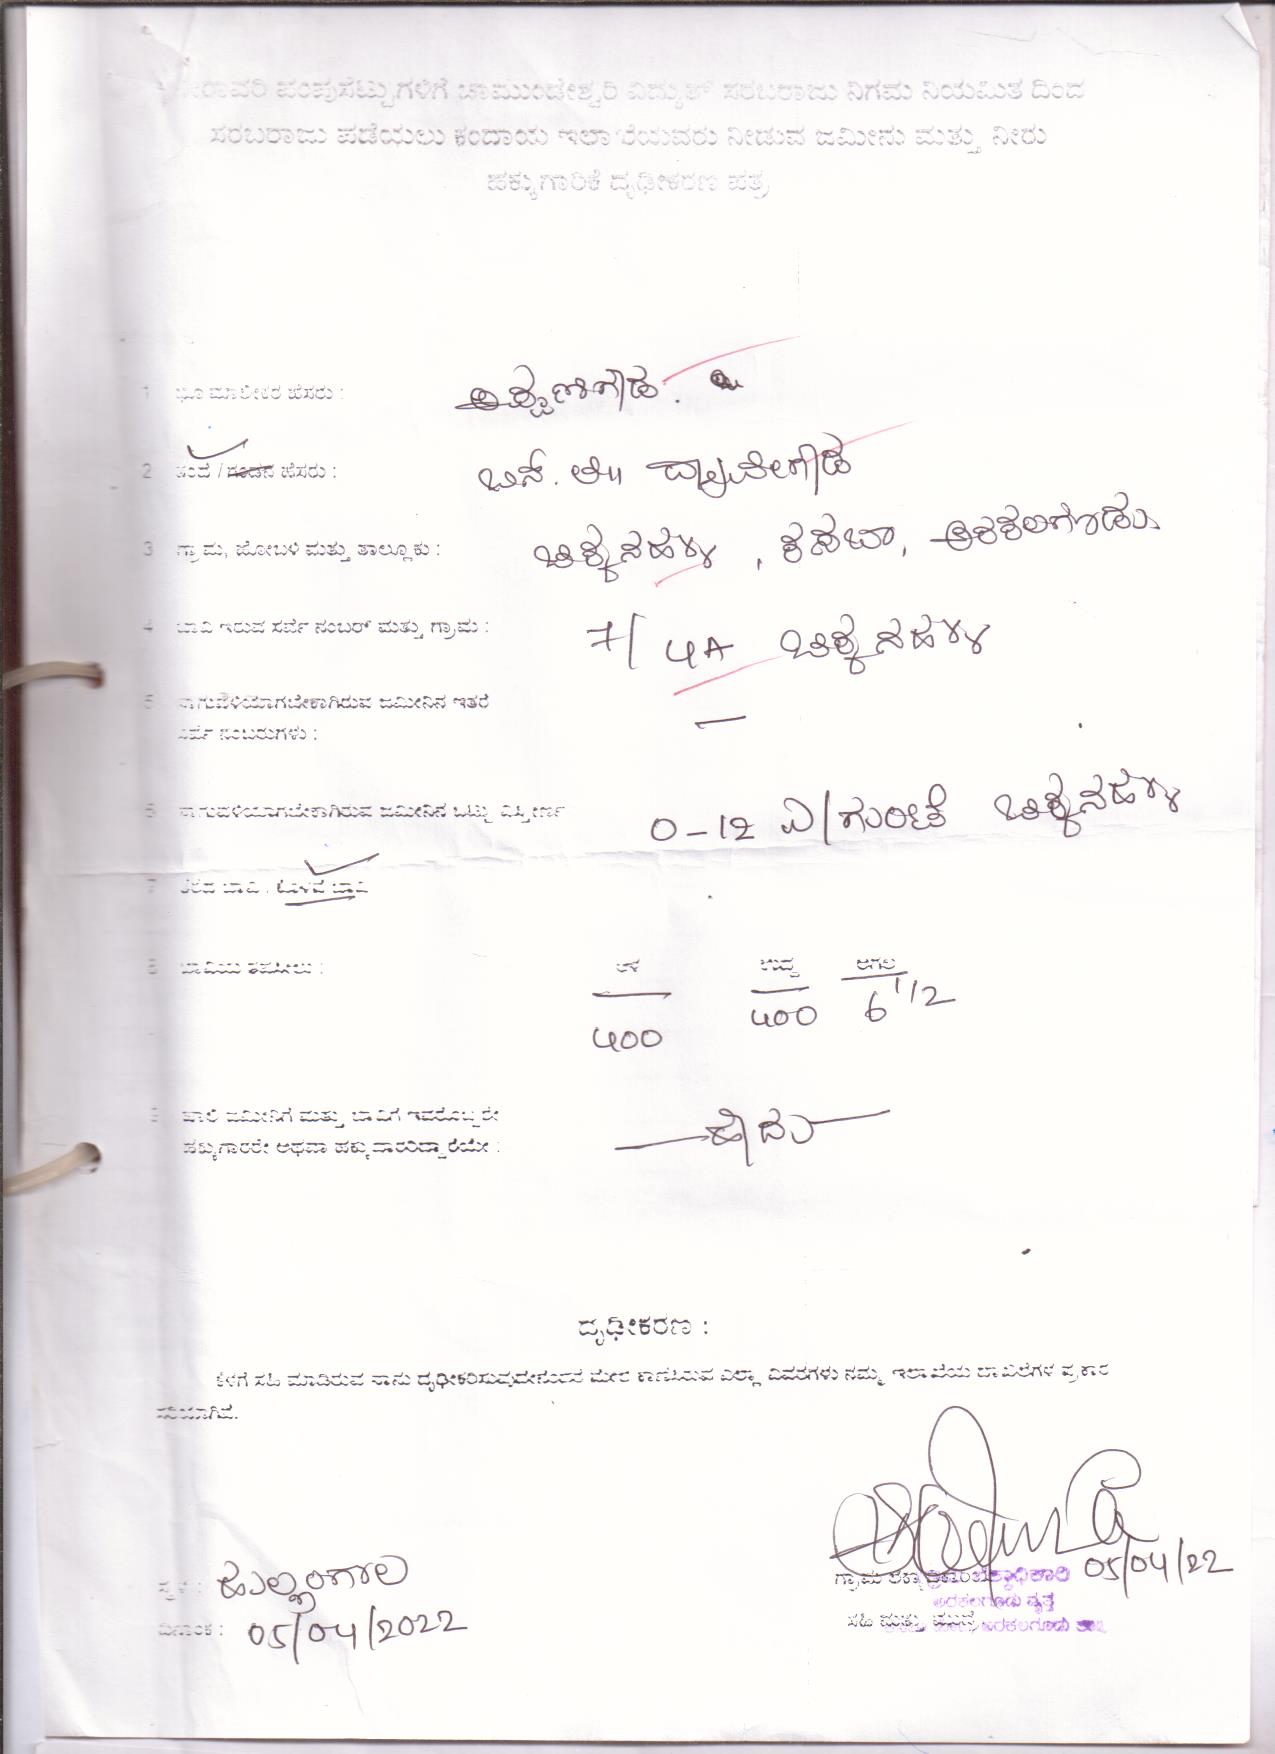 ನೀರಾವರಿ ಪಂಪುಸೆಟ್ಟುಗಳಿಗೆ ಚಾಮುಂಡೇಶ್ವರಿ ವಿದ್ಯುತ್ ಸರಬರಾಜು ನಿಗಮ ನಿಯಮಿತ ದಿಂದ
ಸರಬರಾಜು ಪಡೆಯಲು ಕಂದಾಯ ಇಲಾಖೆಯವರು ನೀಡುವ ಜಮೀನು ಮತ್ತು ನೀರು
ಹಕ್ಕುಗಾರಿಕೆ ದೃಢೀಕರಣ ಪತ್ರ
1 ಭೂ ಮಾಲೀಕರ ಹೆಸರು :
2 ತಂದೆ / ಗಂಡನ ಹೆಸರು : ಬಿನ್. ಲೇ॥ ದ್ಯಾವೇಗೌಡ
3 ಗ್ರಾಮ, ಹೋಬಳಿ ಮತ್ತು ತಾಲ್ಲೂಕು : ಚಿಕ್ಕನಹಳ್ಳಿ , ಕಸಬಾ, ಅರಕಲಗೂಡು
4 ಬಾವಿ ಇರುವ ಸರ್ವೆ ನಂಬರ್ ಮತ್ತು ಗ್ರಾಮ : 7/ 4A ಚಿಕ್ಕನಹಳ್ಳಿ
5 ಸಾಗುವಳಿಯಾಗಬೇಕಾಗಿರುವ ಜಮೀನಿನ ಇತರೆ
ಸರ್ವೆ ನಂಬರುಗಳು : —
6 ಸಾಗುವಳಿಯಾಗಬೇಕಾಗಿರುವ ಜಮೀನಿನ ಒಟ್ಟು ವಿಸ್ತೀರ್ಣ 0-12 ಎ/ಗುಂಟೆ ಚಿಕ್ಕನಹಳ್ಳಿ
7 ತೆರೆದ ಬಾವಿ / ಕೊಳವೆ ಬಾವಿ
8 ಬಾವಿಯ ತಪಶೀಲು : ಆಳ ಉದ್ದ ಅಗಲ
400 400 6 1/2
9 ಖಾಲಿ ಜಮೀನಿಗೆ ಮತ್ತು ಬಾವಿಗೆ ಇವರೊಬ್ಬರೇ
ಹಕ್ಕುಗಾರರೇ ಅಥವಾ ಹಕ್ಕುದಾರರಿದ್ದಾರೆಯೇ : ಹೌದು
ದೃಢೀಕರಣ :
ಕೆಳಗೆ ಸಹಿ ಮಾಡಿರುವ ನಾನು ದೃಢೀಕರಿಸುವುದೇನೆಂದರೆ ಮೇಲೆ ಕಾಣಿಸಿರುವ ಎಲ್ಲಾ ವಿವರಗಳು ನಮ್ಮ ಇಲಾಖೆಯ ದಾಖಲೆಗಳ ಪ್ರಕಾರ
ಸರಿಯಾಗಿದೆ.
ಸ್ಥಳ : ಹುಲ್ಲಂಗಾಲ
05/04/22
ಗ್ರಾಮ
ಅರಕಲಗೂಡು ವೃತ್ತ
ದಿನಾಂಕ : 05/04/2022
ಸಹಿ ಮತ್ತು ಮುದ್ರೆ ಅರಕಲಗೂಡು ತಾ.